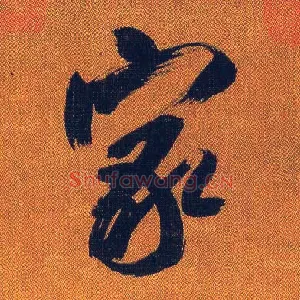 家
Shufawang.cn